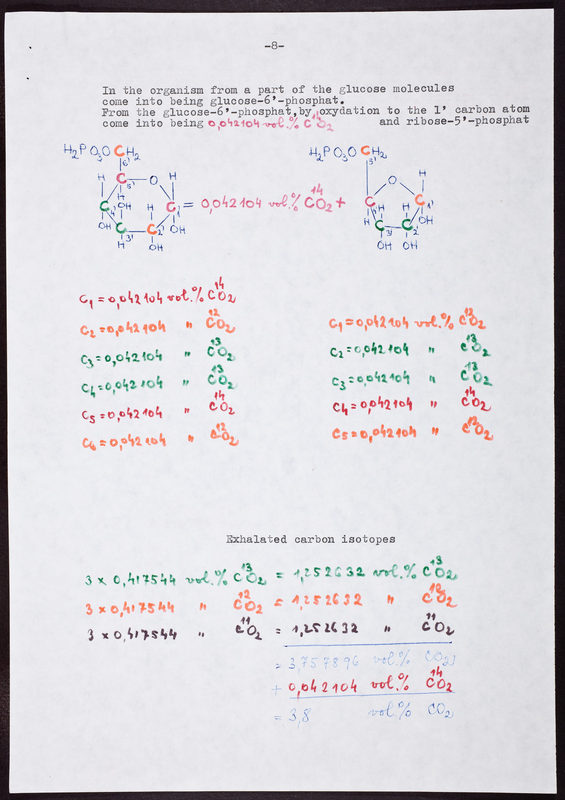 -8-
In the organism from a part of the glucose molecules
come into being glucose-6'-phosphat.
From the glucose-6'-phosphat,by oxydation to the 1' carbon atom
come into being 0,042104 vol.% C¹⁴O₂ and ribose-5'-phosphat
H₂PO₃O CH₂ 6' H₂PO₃O CH₂ 5'
H C 5' O H O H
C 4' OH H C 1' = 0,042104 vol.% C¹⁴O₂ + C H H C 1'
OH C 3' C 2' OH H C 3' C 2' OH
H OH OH OH
C₁=0,042104 vol.% C¹⁴O₂
C₂=0,042104 " C¹²O₂
C₃=0,042104 " C¹³O₂
C₄=0,042104 " C¹³O₂
C₅=0,042104 " C¹⁴O₂
C₆=0,042104 " C¹²O₂
C₁=0,042104 vol.% C¹²O₂
C₂=0,042104 " C¹³O₂
C₃=0,042104 " C¹³O₂
C₄=0,042104 " C¹⁴O₂
C₅=0,042104 " C¹²O₂
Exhalated carbon isotopes
3 x 0,417544 vol.% C¹³O₂ = 1,252632 vol.% C¹³O₂
3 x 0,417544 " C¹²O₂ = 1,252632 " C¹²O₂
3 x 0,417544 " C¹¹O₂ = 1,252632 " C¹¹O₂
= 3,757896 vol.% CO₂
+ 0,042104 vol.% C¹⁴O₂
= 3,8 vol.% CO₂